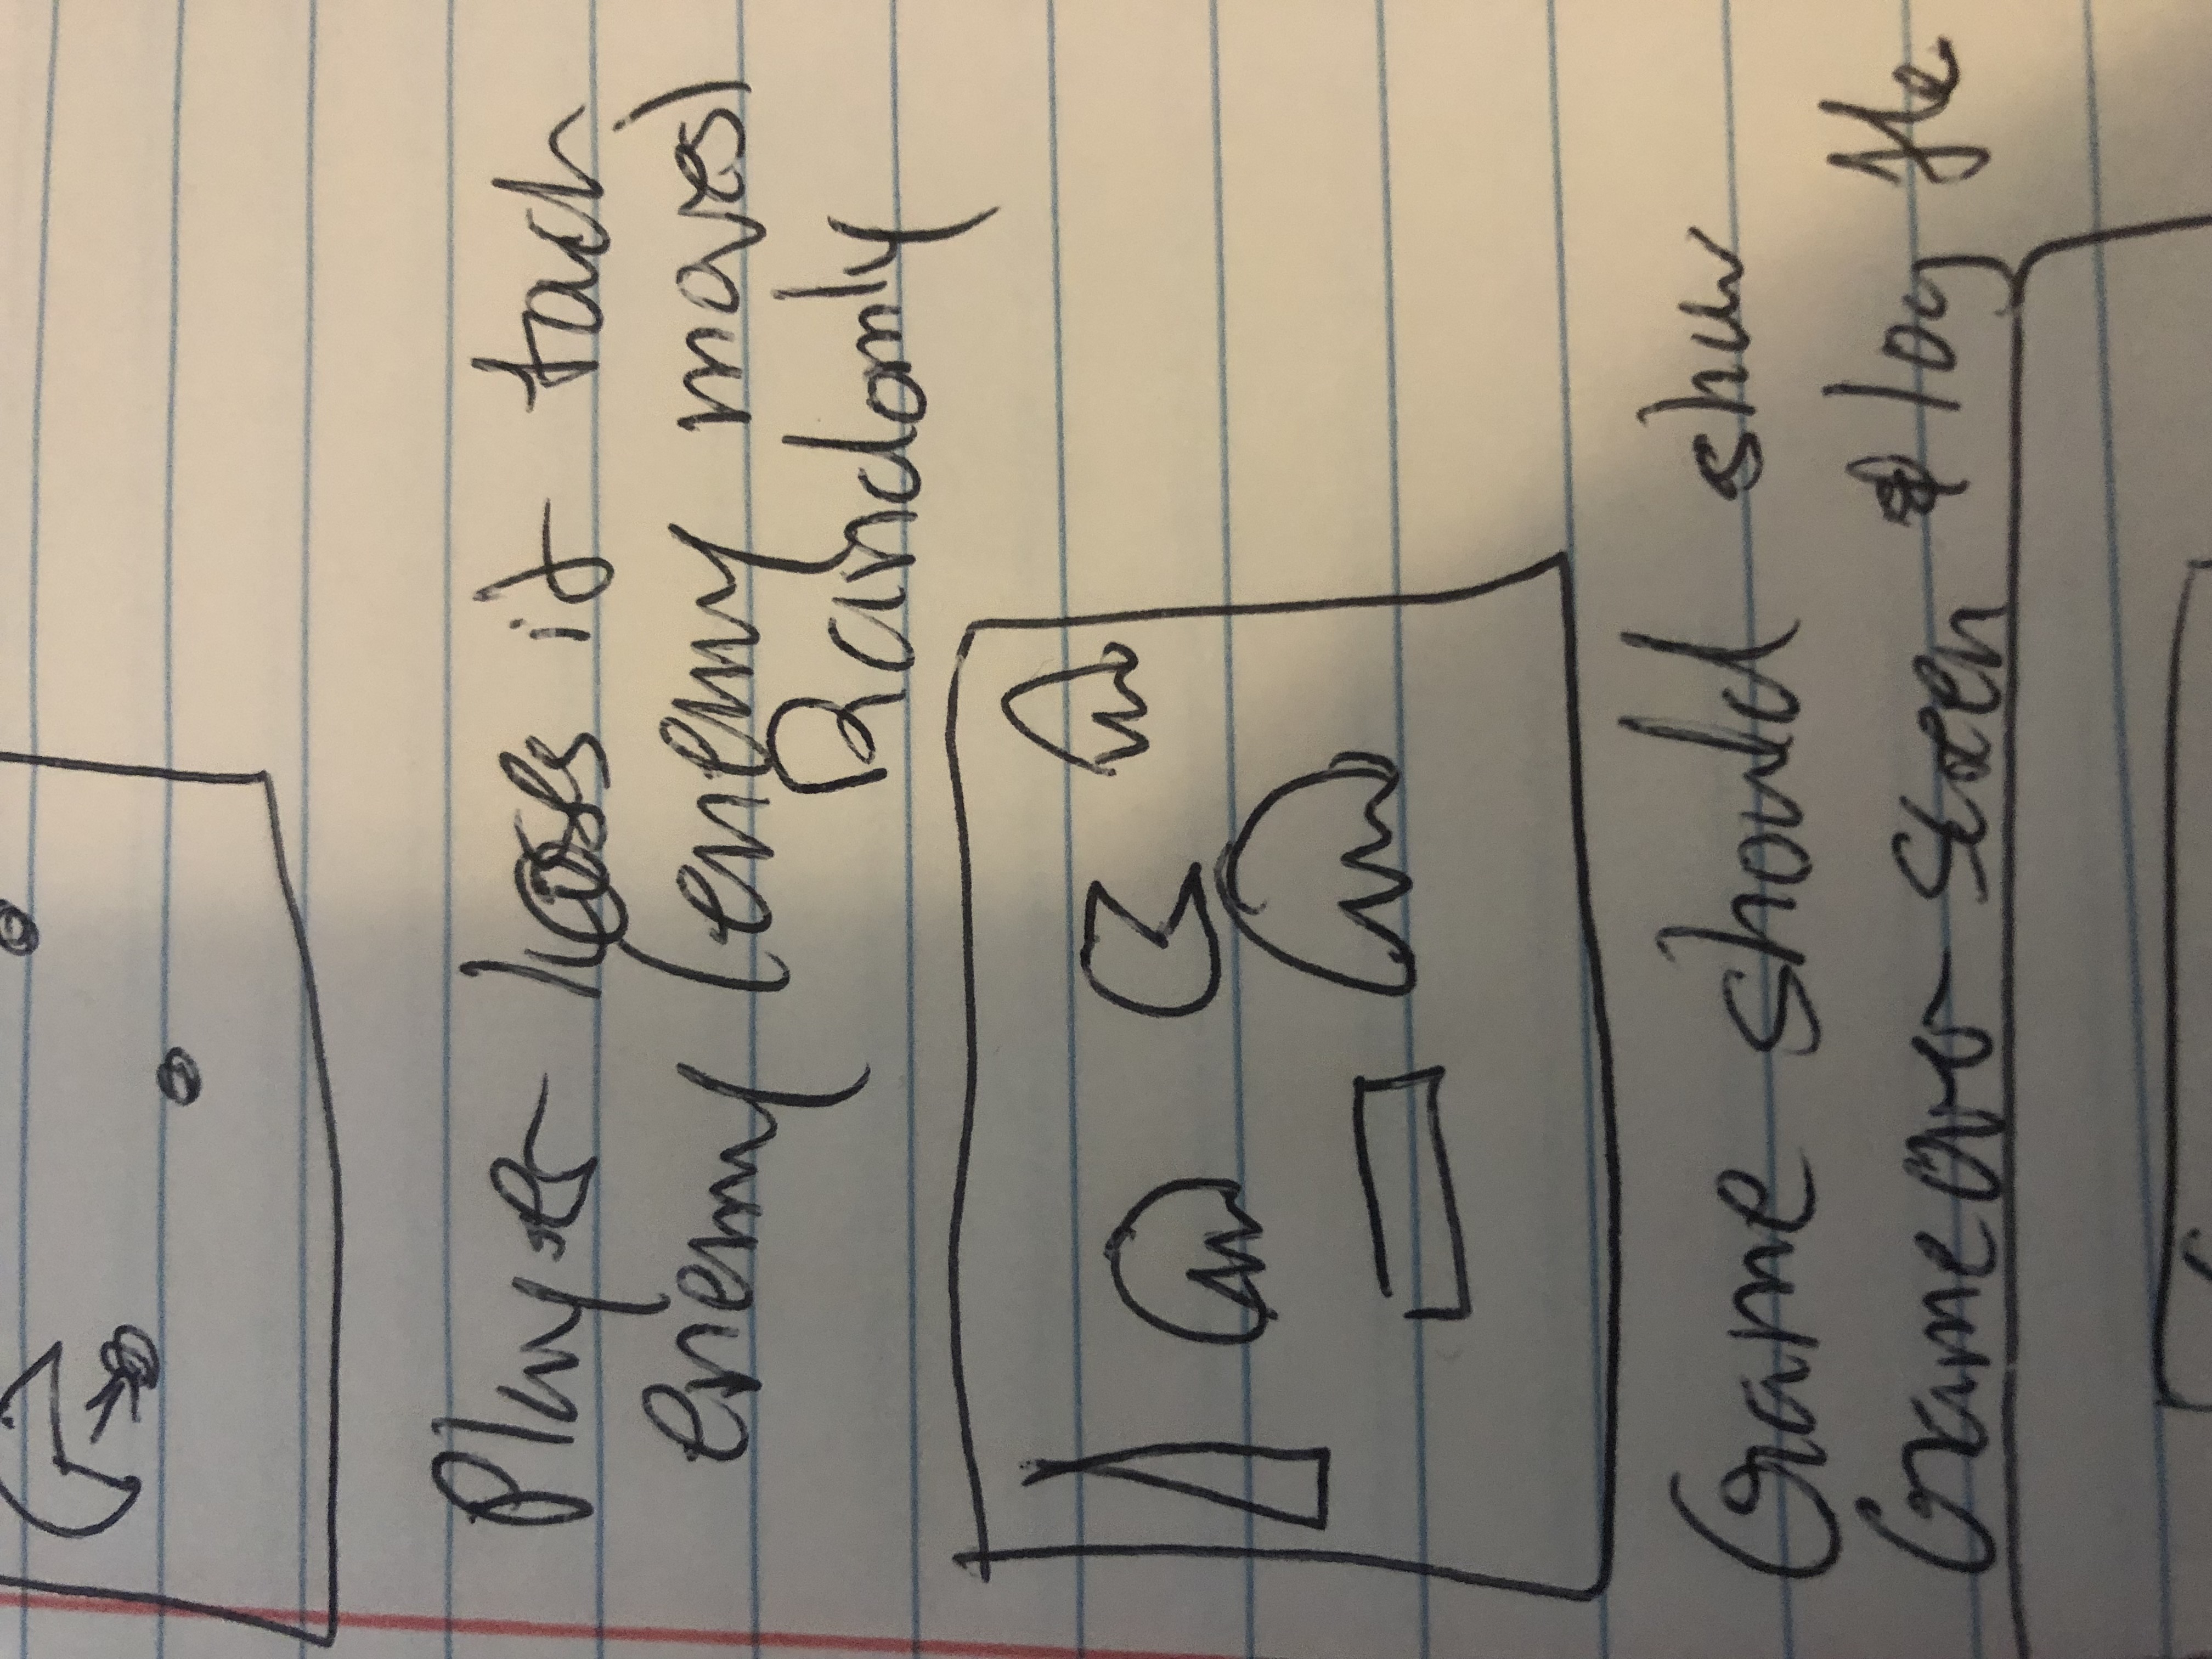 Player loses if touch
enemy (enemy moves)
Randomly
Game should show
Game over screen & log the